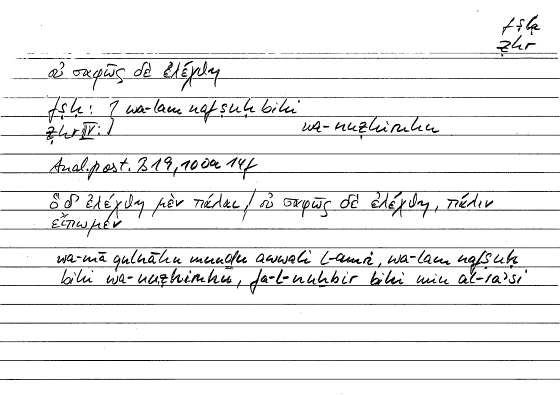 fṣḥ
ẓhr
οὐ σαφῶς δὲ ἐλέχθη
fṣḥ : } wa-lam nafṣuḥ bihi
ẓhr IV : } wa-nuẓhiruhu
Anal. post. B 19, 100a 14f
ὃ δ' ἐλέχθη μὲν πάλαι / οὐ σαφῶς δὲ ἐλέχθη, πάλιν
εἴπωμεν
wa-mā qulnāhu munḏu awwali l-amri, wa-lam nafṣuḥ
bihi wa-nuẓhiruhu, fa-l-nuḫbir bihi min al-raʾsi